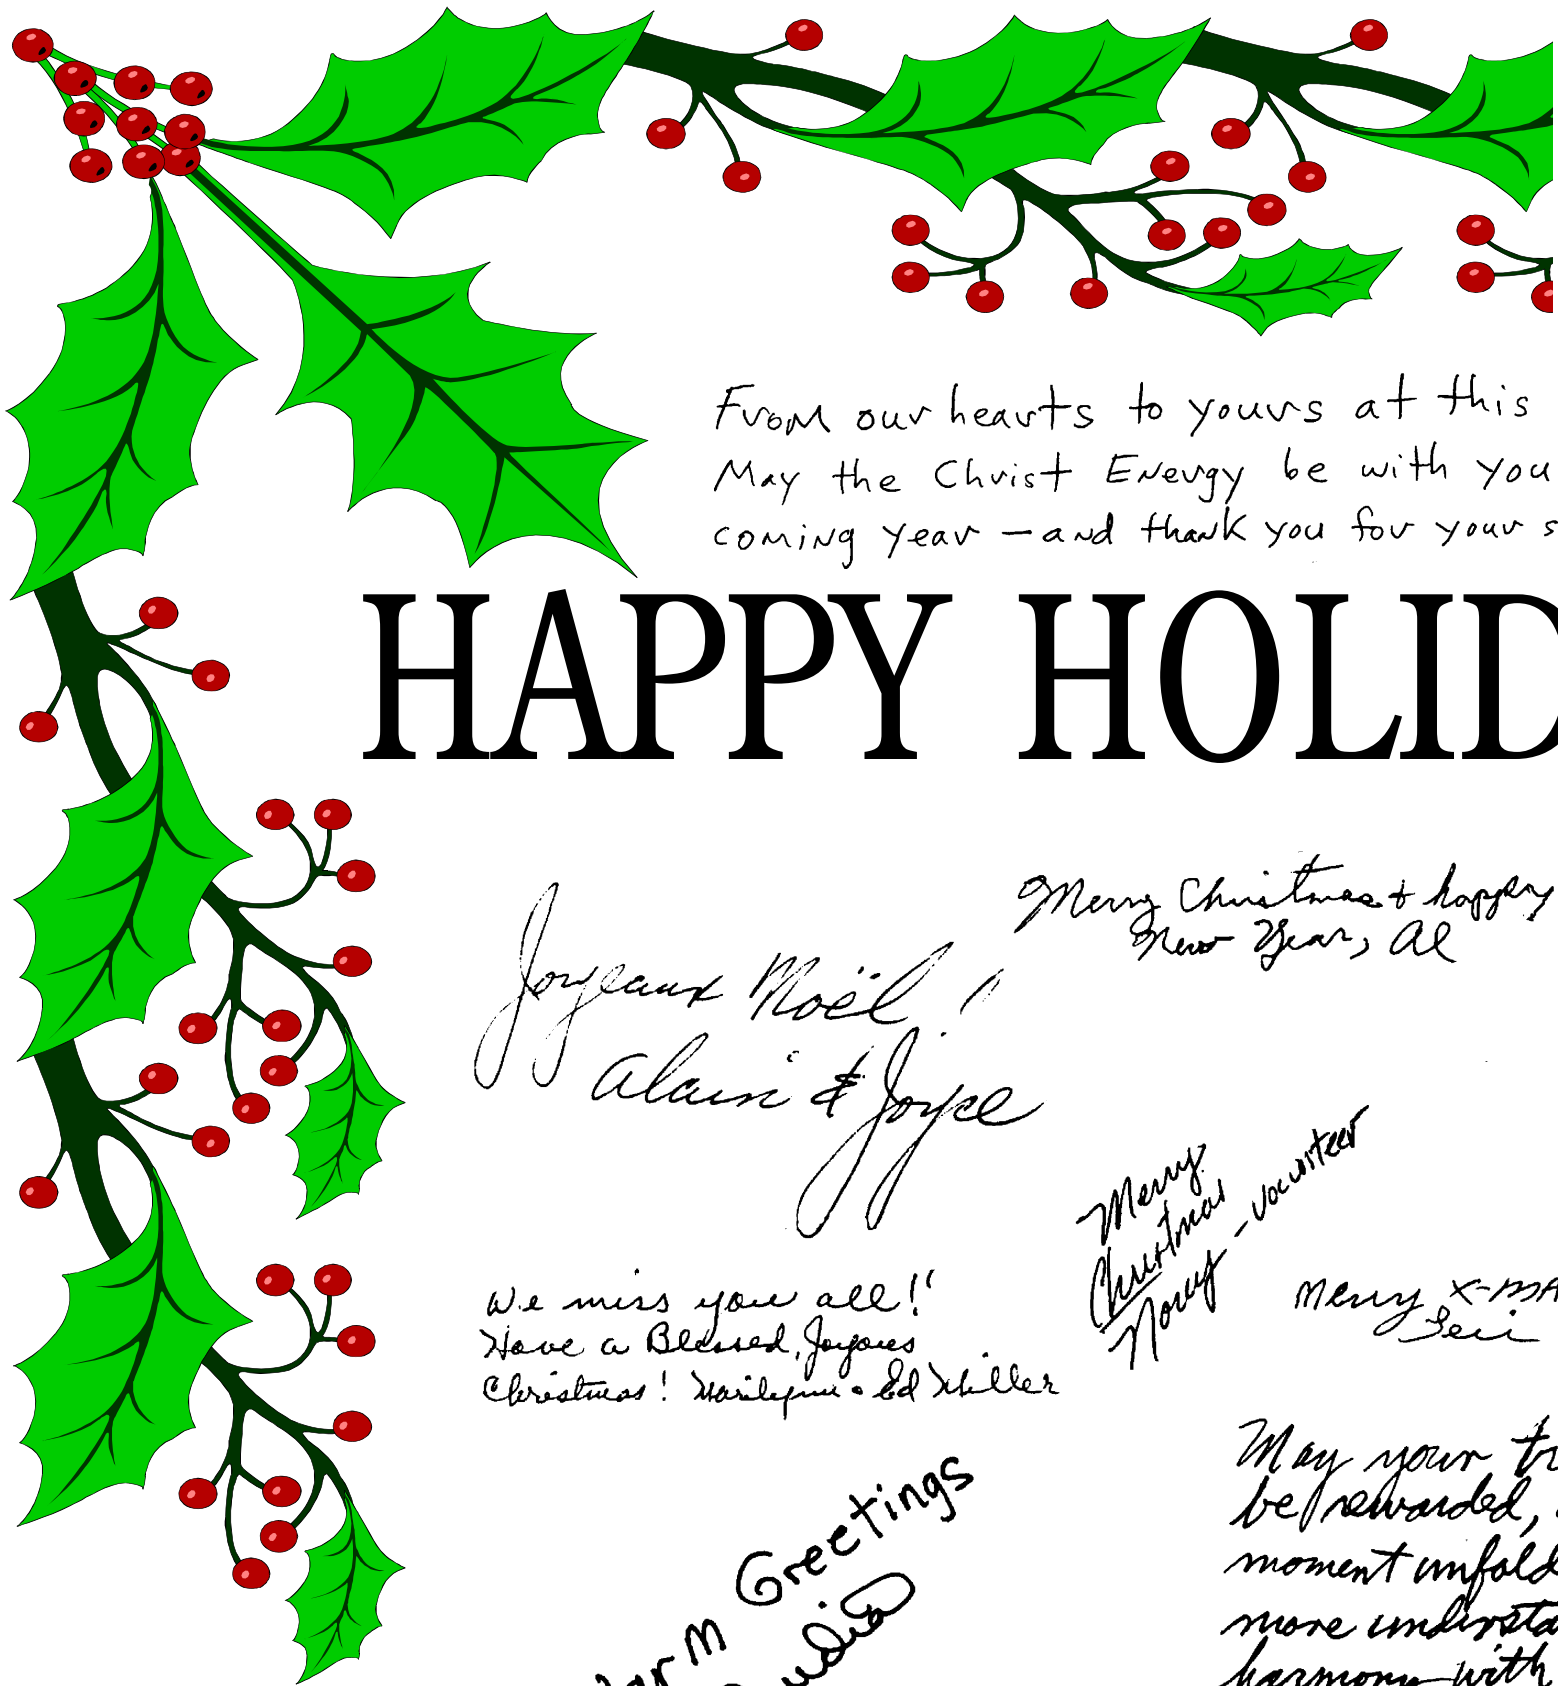 From our hearts to yours at this
May the Christ Energy be with you
coming year — and thank you for your s
HAPPY HOLID
Merry Christmas & happy
New Year, Al
Joyeaux Noël!
Alain & Joyce
Merry
Christmas
- volunteer
We miss you all!!
Have a Blessed, Joyous
Christmas! Marilynn & Ed Miller
Merry X-MA
Teri
May your tr
be rewarded,
moment unfold
more understa
harmony with
Greetings